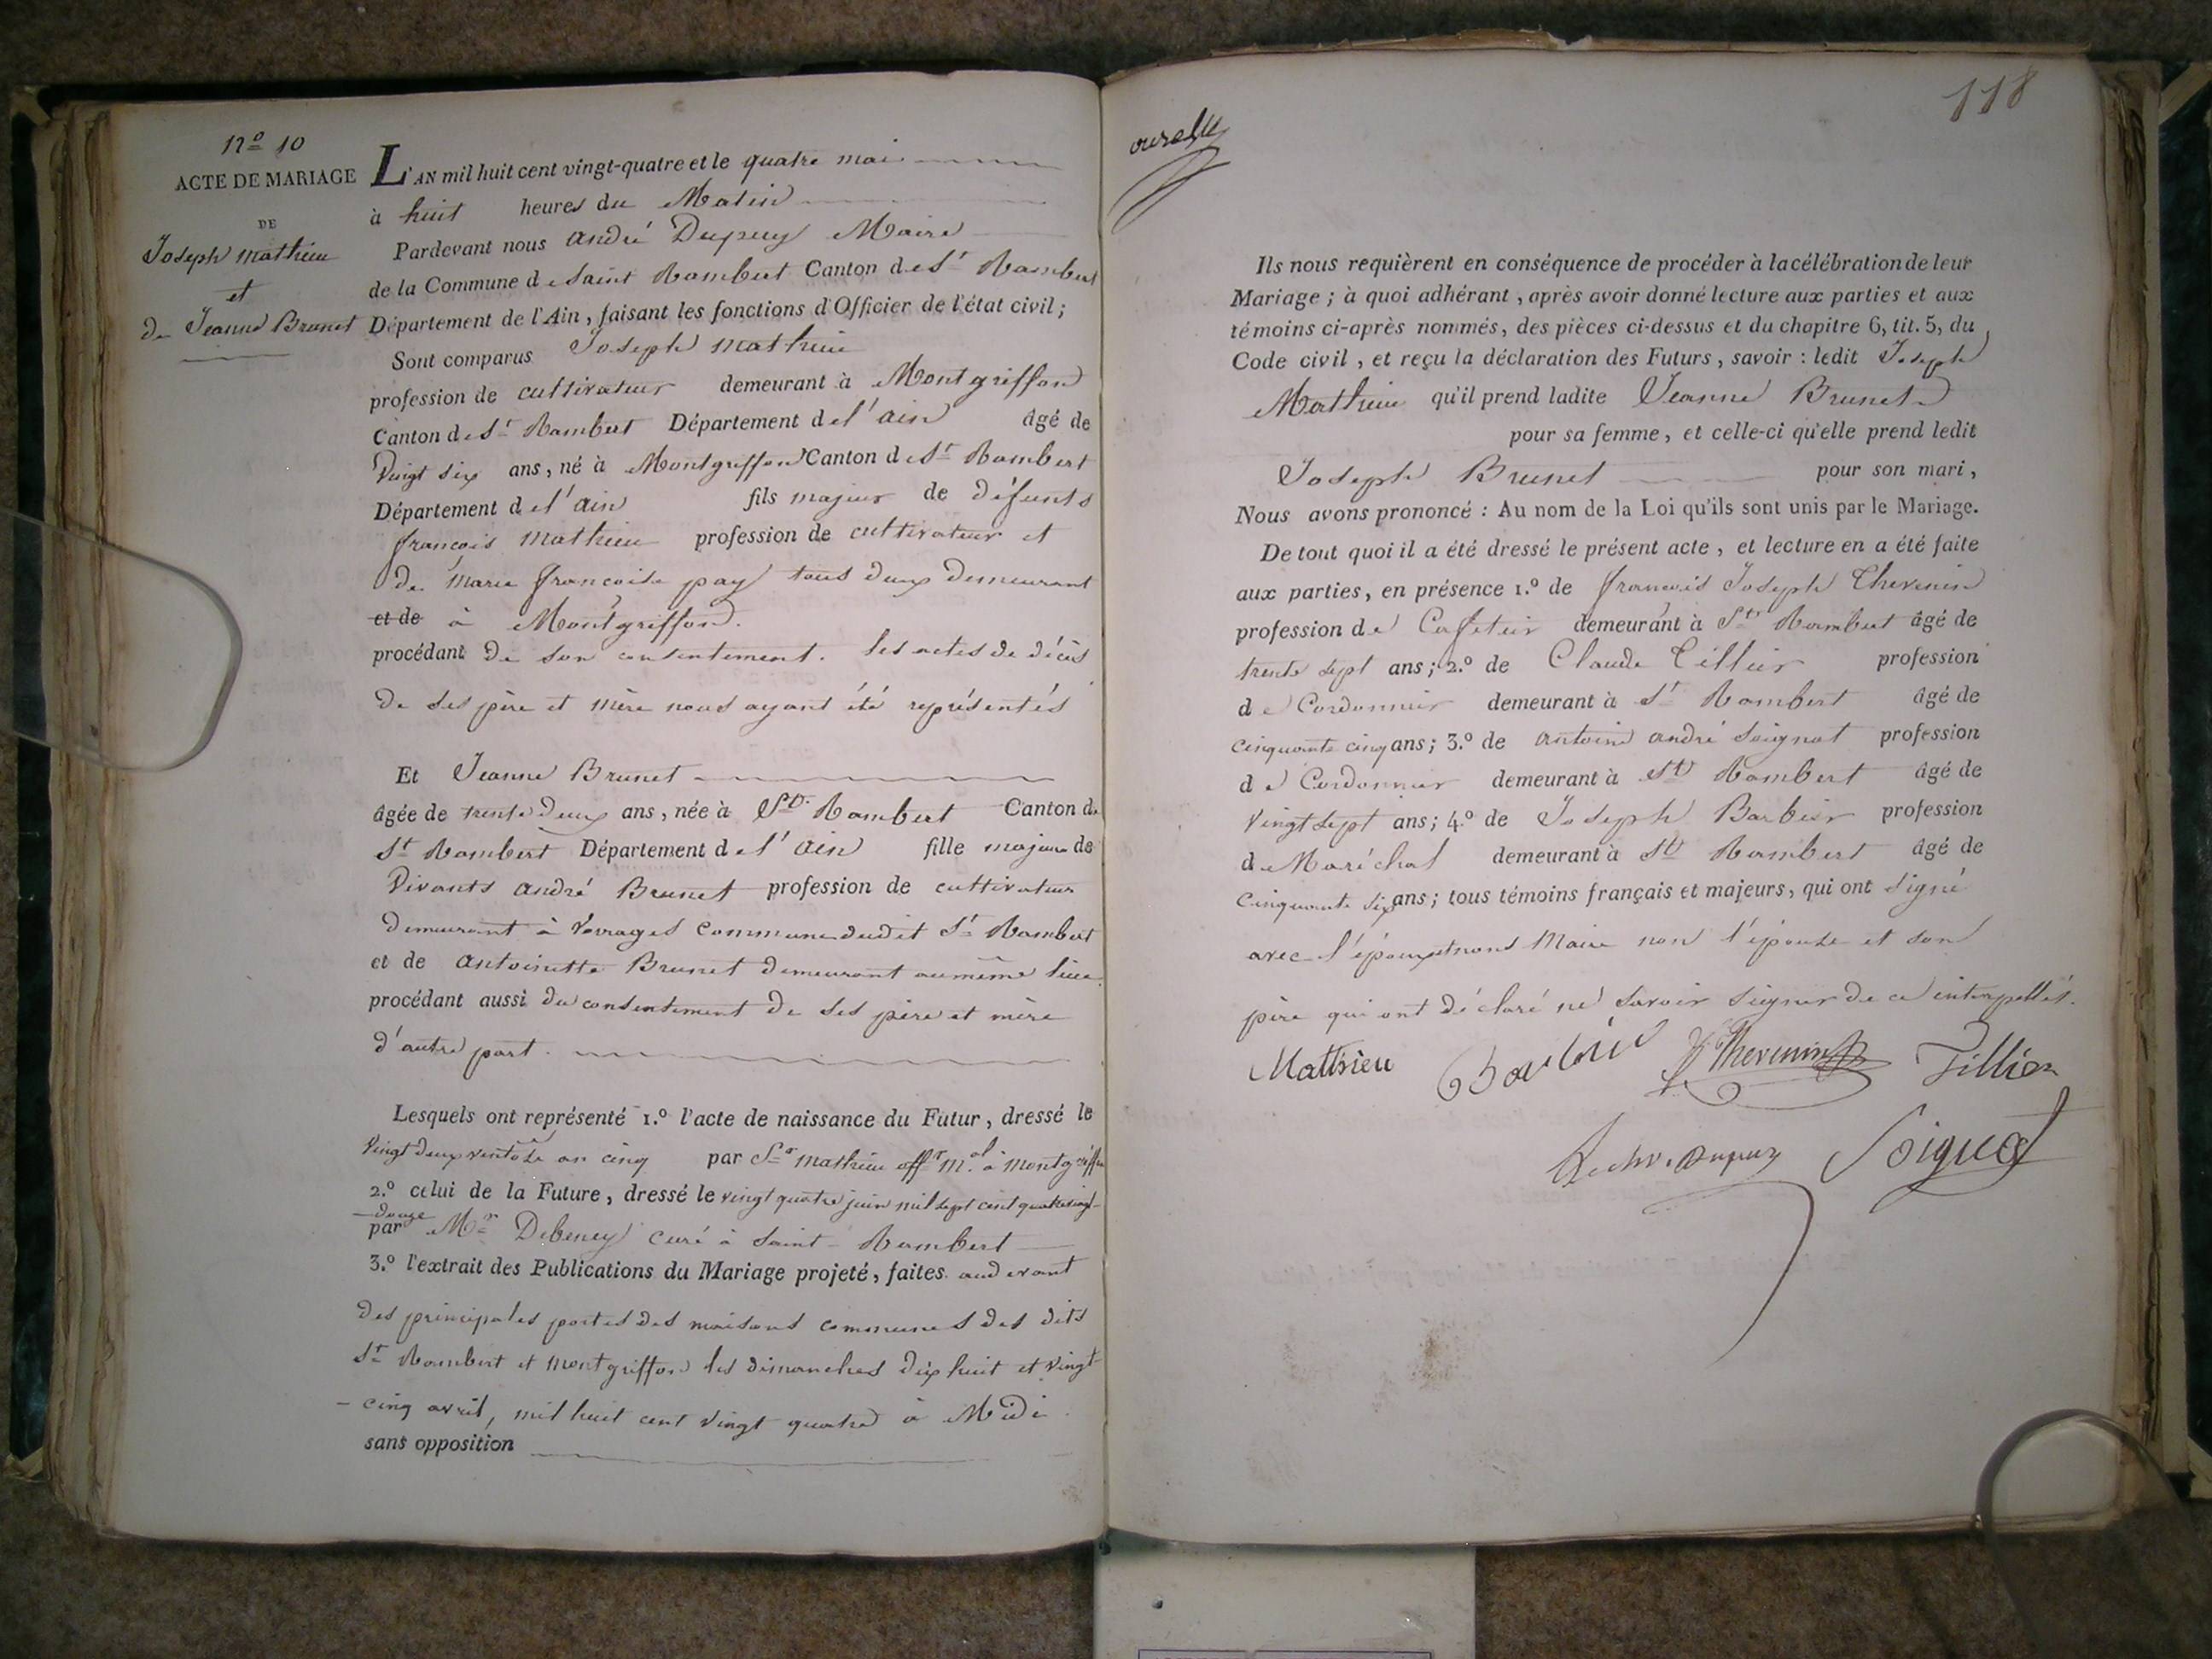 N.º 10
ACTE DE MARIAGE
DE
Joseph Mathieu
et
de Jeanne Brunet
L'AN mil huit cent vingt-quatre et le quatre mai
à huit heures du Matin
Pardevant nous André Dupuy Maire
de la Commune de Saint Rambert Canton de St Rambert
Département de l'Ain, faisant les fonctions d'Officier de l'état civil;
Sont comparus Joseph Mathieu
profession de cultivateur demeurant à Montgriffon
Canton de St Rambert Département de l'ain âgé de
vingt six ans, né à Montgriffon Canton de St Rambert
Département de l'ain fils majeur de défunts
françois Mathieu profession de cultivateur et
de Marie françoise pay tous deux demeurant
et de à Montgriffon.
procédant de son consentement. les actes de décès
de ses père et mère nous ayant été représentés
Et Jeanne Brunet
âgée de trente deux ans, née à St Rambert Canton de
St Rambert Département de l'ain fille majeure de
vivants André Brunet profession de cultivateur
demeurant à vorages Commune dudit St Rambert
et de Antoinette Brunet demeurant au même lieu
procédant aussi du consentement de ses père et mère
d'autre part.
Lesquels ont représenté 1.º l'acte de naissance du Futur, dressé le
vingt deux ventose an cinq par Sr Mathieu offr m.al à montgriffon
2.º celui de la Future, dressé le vingt quatre juin mil sept cent quatrevingt-
douze
par Mr Debeney curé à Saint-Rambert
3.º l'extrait des Publications du Mariage projeté, faites audevant
des principales portes des maisons communes des dits
St Rambert et Montgriffon les dimanches dix huit et vingt
- cinq avril, mil huit cent vingt quatre à Midi.
sans opposition
118
Ils nous requièrent en conséquence de procéder à la célébration de leur
Mariage; à quoi adhérant, après avoir donné lecture aux parties et aux
témoins ci-après nommés, des pièces ci-dessus et du chapitre 6, tit. 5, du
Code civil, et reçu la déclaration des Futurs, savoir: ledit Joseph
Mathieu qu'il prend ladite Jeanne Brunet
pour sa femme, et celle-ci qu'elle prend ledit
Joseph Brunet pour son mari,
Nous avons prononcé: Au nom de la Loi qu'ils sont unis par le Mariage.
De tout quoi il a été dressé le présent acte, et lecture en a été faite
aux parties, en présence 1.º de françois Joseph Thevenin
profession de Cafetier demeurant à St Rambert âgé de
trente sept ans; 2.º de Claude Tillier profession
de Cordonnier demeurant à St Rambert âgé de
cinquante cinq ans; 3.º de Antoine André Soignat profession
de Cordonnier demeurant à St Rambert âgé de
vingt sept ans; 4.º de Joseph Barbier profession
de Maréchal demeurant à St Rambert âgé de
cinquante six ans; tous témoins français et majeurs, qui ont signé
avec l'époux et nous Maire non l'épouse et son
père qui ont déclaré ne savoir signer de ce interpellés.
Matthieu Barbier Thevenin Tillier
Dupuy Soignat